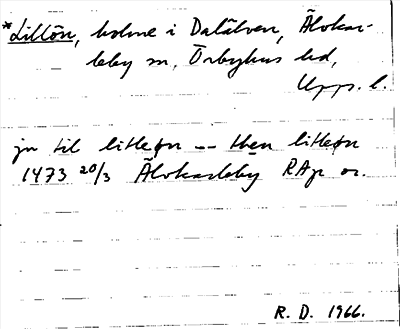 *Lillön, holme i Dalälven, Älvkar-
leby sn, Örbyhus hd,
Upps. l.
jn til litleøn -- then litleøn
1473 20/3 Älvkarleby RAp or.
R. D. 1966.